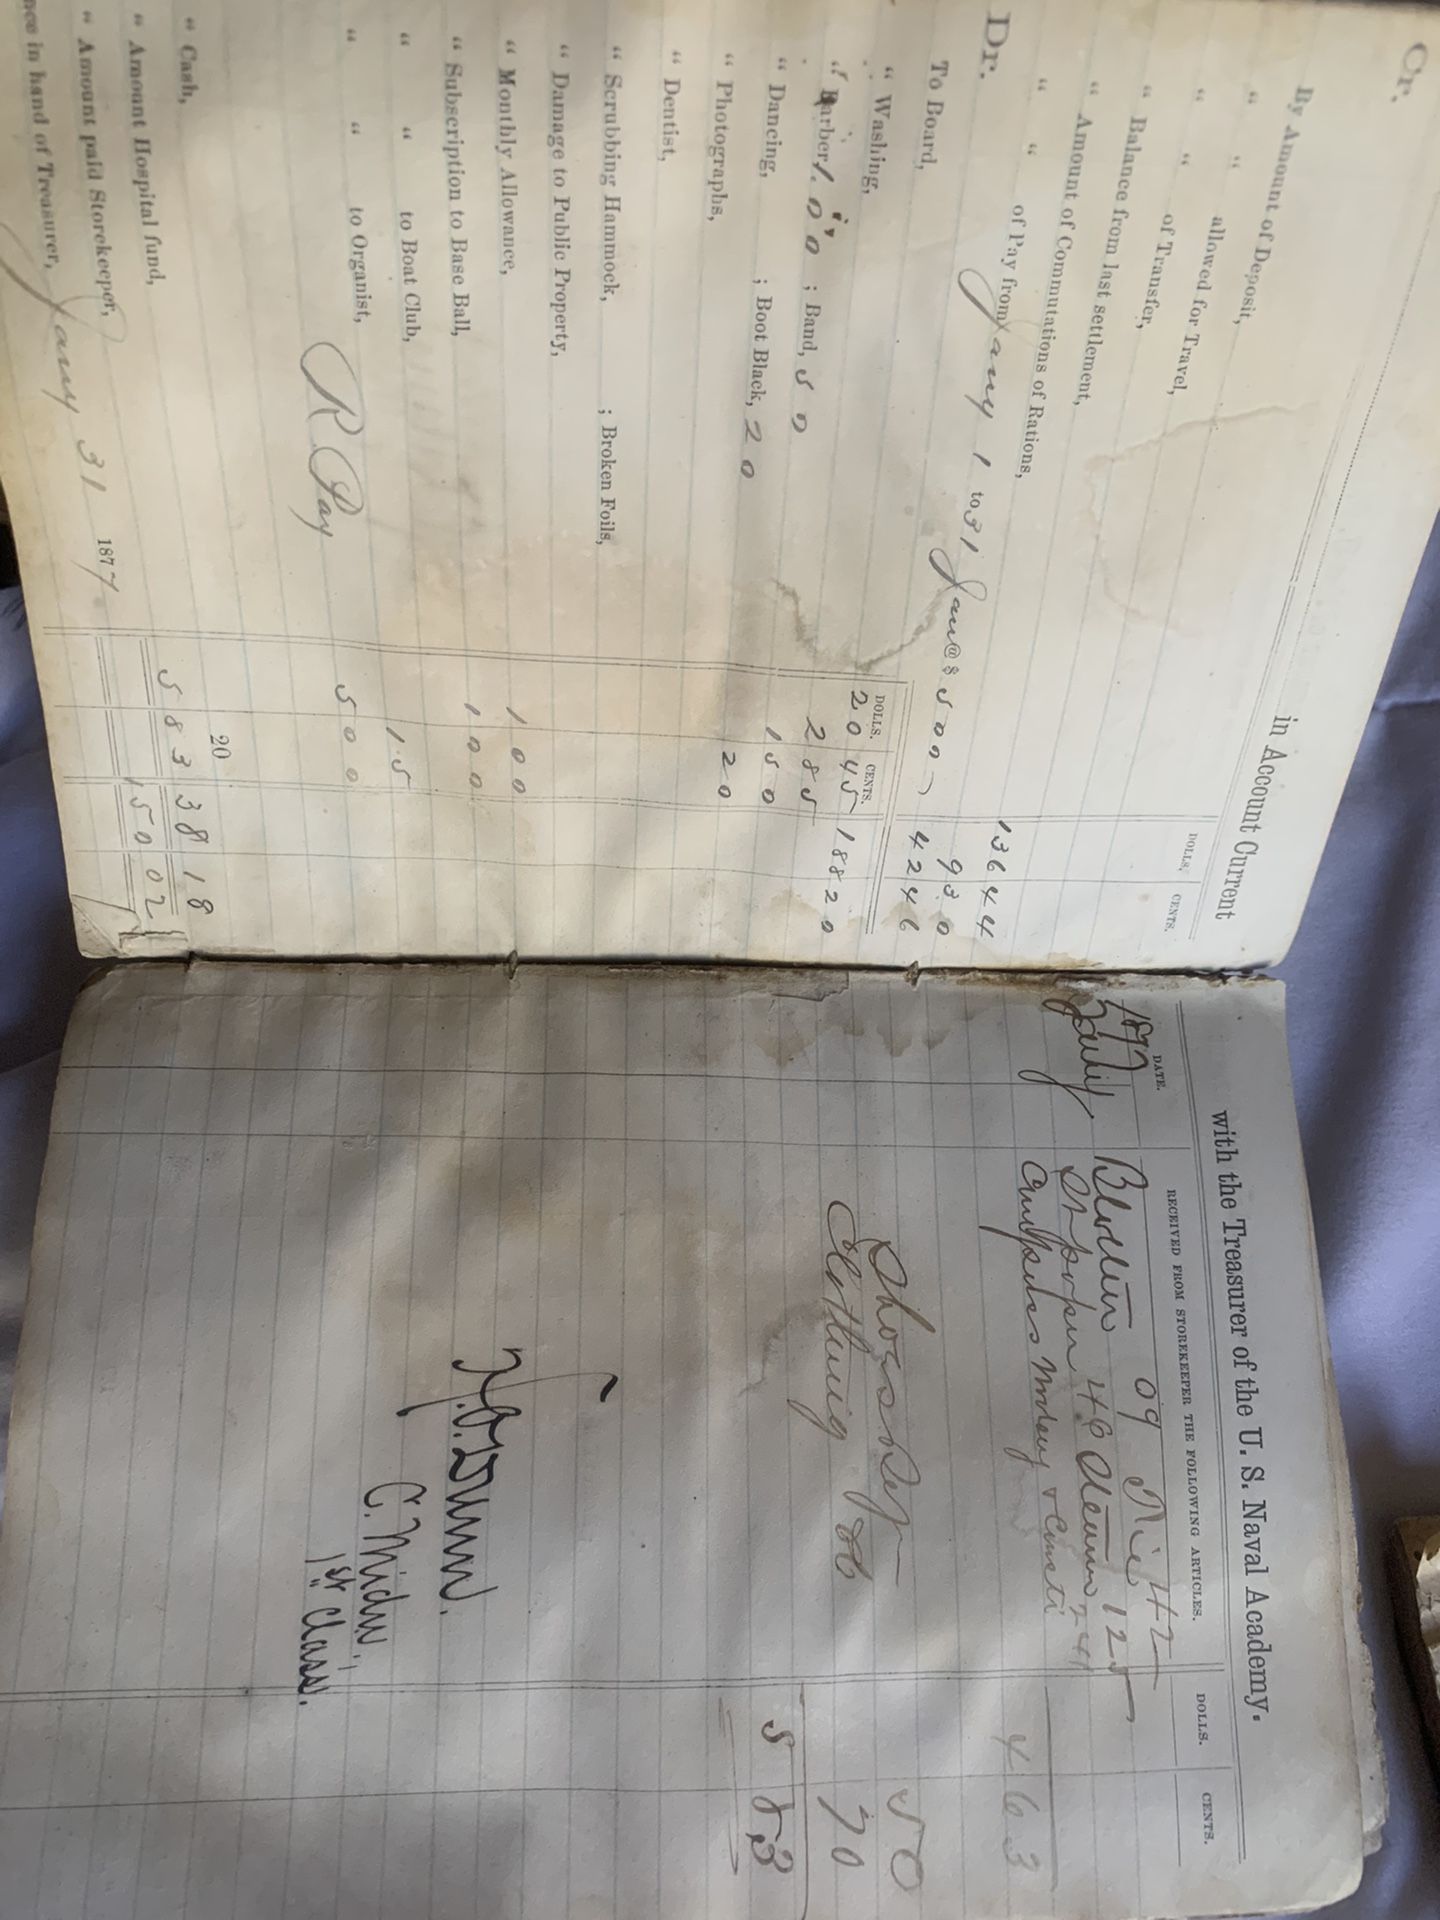 in Account Current
Cr.
DOLLS. CENTS.
By Amount of Deposit,
" " allowed for Travel,
" " of Transfer,
" Balance from last settlement, 136 44
" Amount of Commutations of Rations, 9 30
" " of Pay from Jany 1 to 31 Jan @ $ 500, 42 46
Dr. DOLLS. CENTS. 188 20
To Board, 20 45
" Washing, 2 85
" Barber, 1.00 ; Band, 50 1 50
" Dancing, ; Boot Black, 20 20
" Photographs,
" Dentist,
" Scrubbing Hammock, ; Broken Foils,
" Damage to Public Property,
" Monthly Allowance, 1 00
" Subscription to Base Ball, 1 00
" " to Boat Club, 15
" " to Organist,
R. Pay 5 00
20
" Cash,
" Amount Hospital fund,
" Amount paid Storekeeper, 5 83 38 18
nce in hand of Treasurer, Jany 31 1877. 150 02
with the Treasurer of the U. S. Naval Academy.
DATE. RECEIVED FROM STOREKEEPER THE FOLLOWING ARTICLES. DOLLS. CENTS.
1877 09 42
46 125
4 63
50
Clothing 70
5 83
H.O. Dunn.
C. Midn.
1st class.